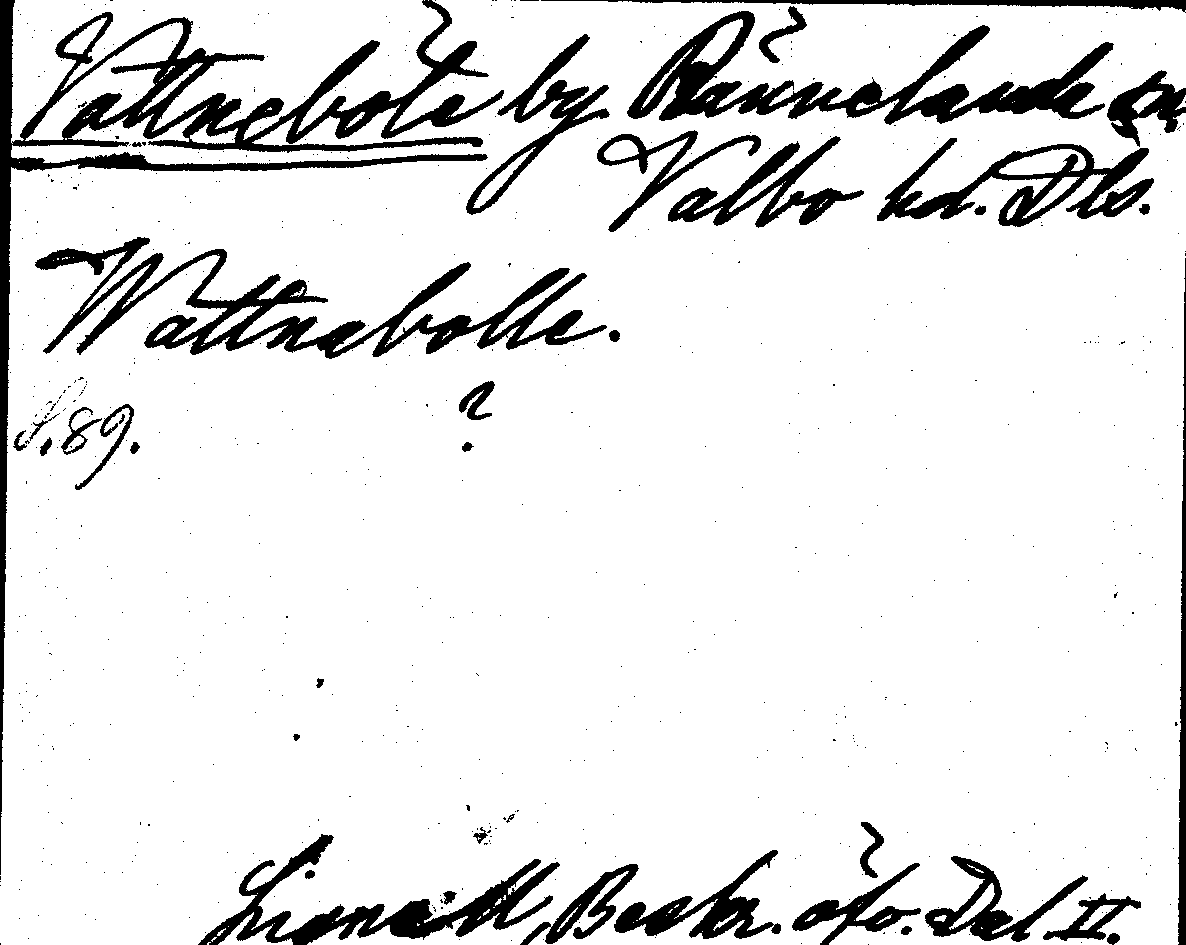 Vattneböte by. Rännelanda sn.
Valbo hd. Dls.
Wattnabolle.
?
S. 89.
Lignell, Beskr. öfv. Dal II.